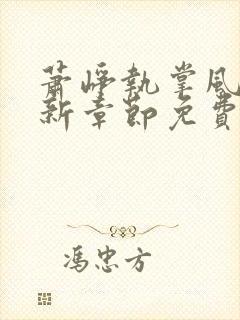 萧峥执掌风
新章节免费
冯忠方